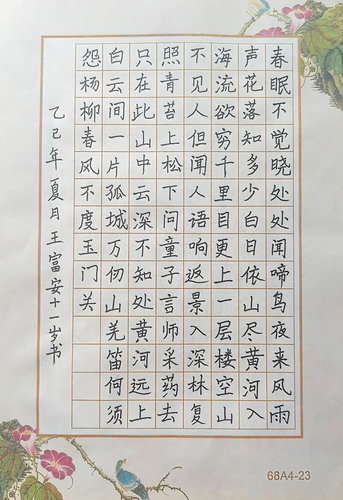 春眠不觉晓处处闻啼鸟夜来风雨
声花落知多少白日依山尽黄河入
海流欲穷千里目更上一层楼空山
不见人但闻人语响返景入深林复
照青苔上松下问童子言师采药去
只在此山中云深不知处黄河远上
白云间一片孤城万仞山羌笛何须
怨杨柳春风不度玉门关
乙巳年夏月王富安十一岁书
68A4-23